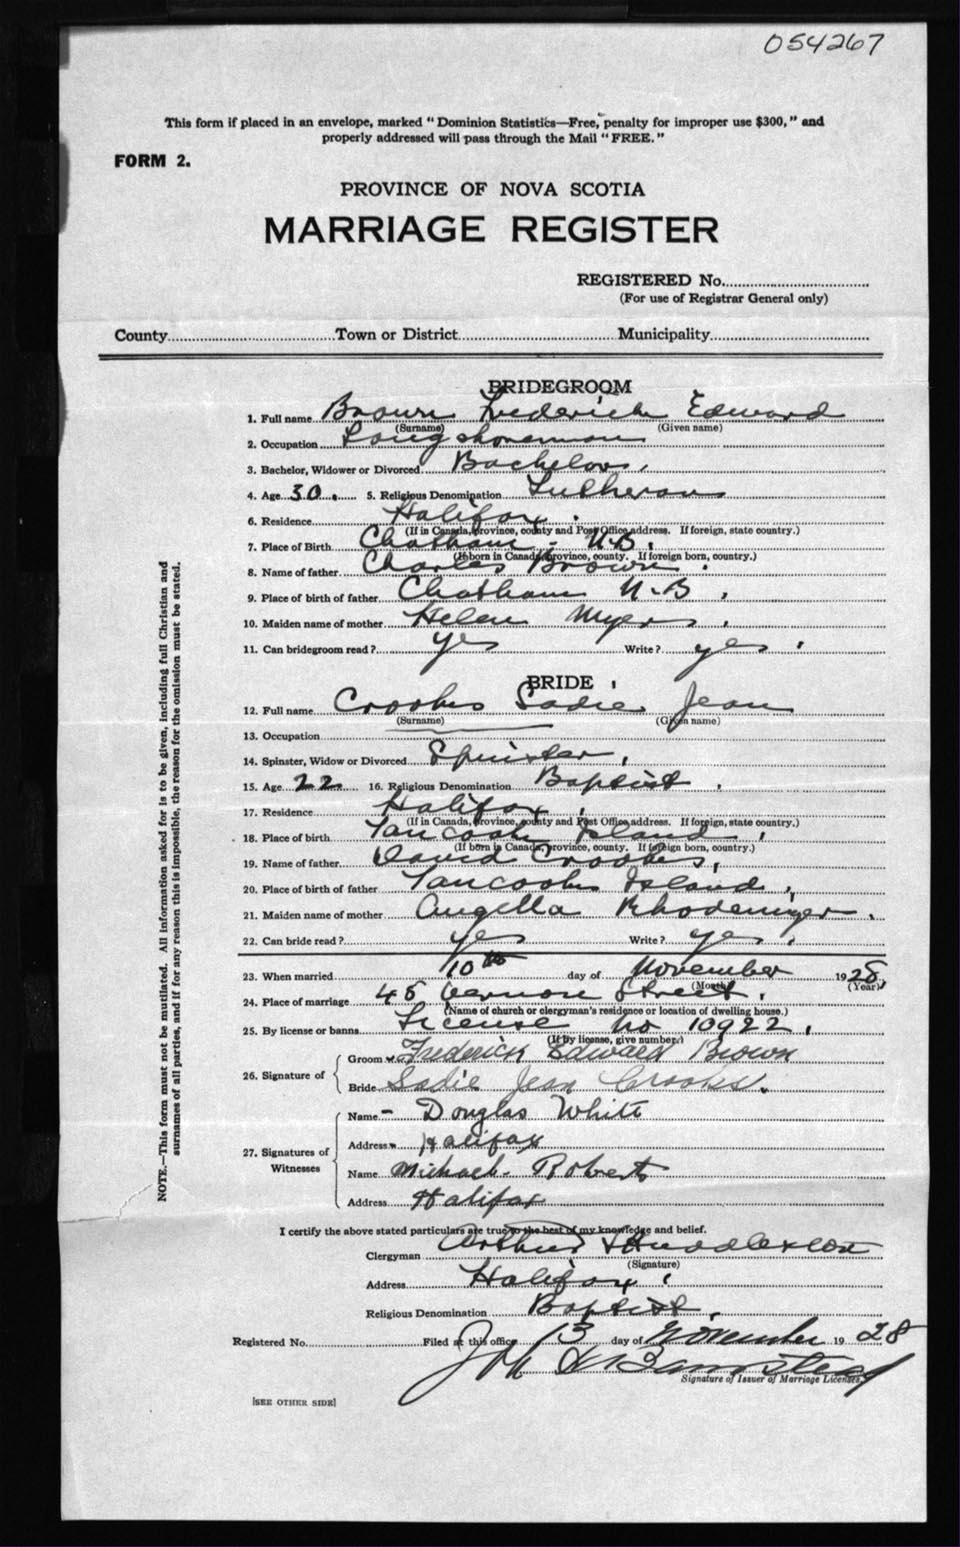 054267
This form if placed in an envelope, marked "Dominion Statistics—Free, penalty for improper use $300," and
properly addressed will pass through the Mail "FREE."
FORM 2.
PROVINCE OF NOVA SCOTIA
MARRIAGE REGISTER
REGISTERED No.
(For use of Registrar General only)
County Town or District Municipality
BRIDEGROOM
1. Full name Brown Frederick Edward
(Surname) (Given name)
2. Occupation Longshoreman
3. Bachelor, Widower or Divorced Bachelor.
4. Age 30. 5. Religious Denomination Lutheran
6. Residence Halifax.
(If in Canada, province, county and Post Office address. If foreign, state country.)
7. Place of Birth Chatham, N.B.
(If born in Canada, province, county. If foreign born, country.)
8. Name of father Charles Brown.
9. Place of birth of father Chatham N.B.
10. Maiden name of mother Helen Myers.
11. Can bridegroom read? yes Write? yes.
BRIDE
12. Full name Crooks Sadie Jean
(Surname) (Given name)
13. Occupation
14. Spinster, Widow or Divorced Spinster.
15. Age 22 16. Religious Denomination Baptist.
17. Residence Halifax.
(If in Canada, province, county and Post Office address. If foreign, state country.)
18. Place of birth Tancook Island.
(If born in Canada, province, county. If foreign born, country.)
19. Name of father David Crooks.
20. Place of birth of father Tancook Island.
21. Maiden name of mother Angella Rhodeniyer.
22. Can bride read? yes Write? yes.
23. When married 10th day of November 1928
(Month) (Year)
24. Place of marriage 45 Vernon Street.
(Name of church or clergyman's residence or location of dwelling house.)
25. By license or banns License No 10922.
(If by license, give number.)
26. Signature of
Groom Frederick Edward Brown
Bride Sadie Jean Crooks.
27. Signatures of Witnesses
Name Douglas White
Address Halifax
Name Michael Roberts
Address Halifax
I certify the above stated particulars are true to the best of my knowledge and belief.
Clergyman Arthur
(Signature)
Address Halifax.
Religious Denomination Baptist.
Registered No. Filed at this office 13 day of November 1928
Signature of Issuer of Marriage Licenses.
[SEE OTHER SIDE]
NOTE.—This form must not be mutilated. All information asked for is to be given, including full Christian and
surnames of all parties, and if for any reason this is impossible, the reason for the omission must be stated.